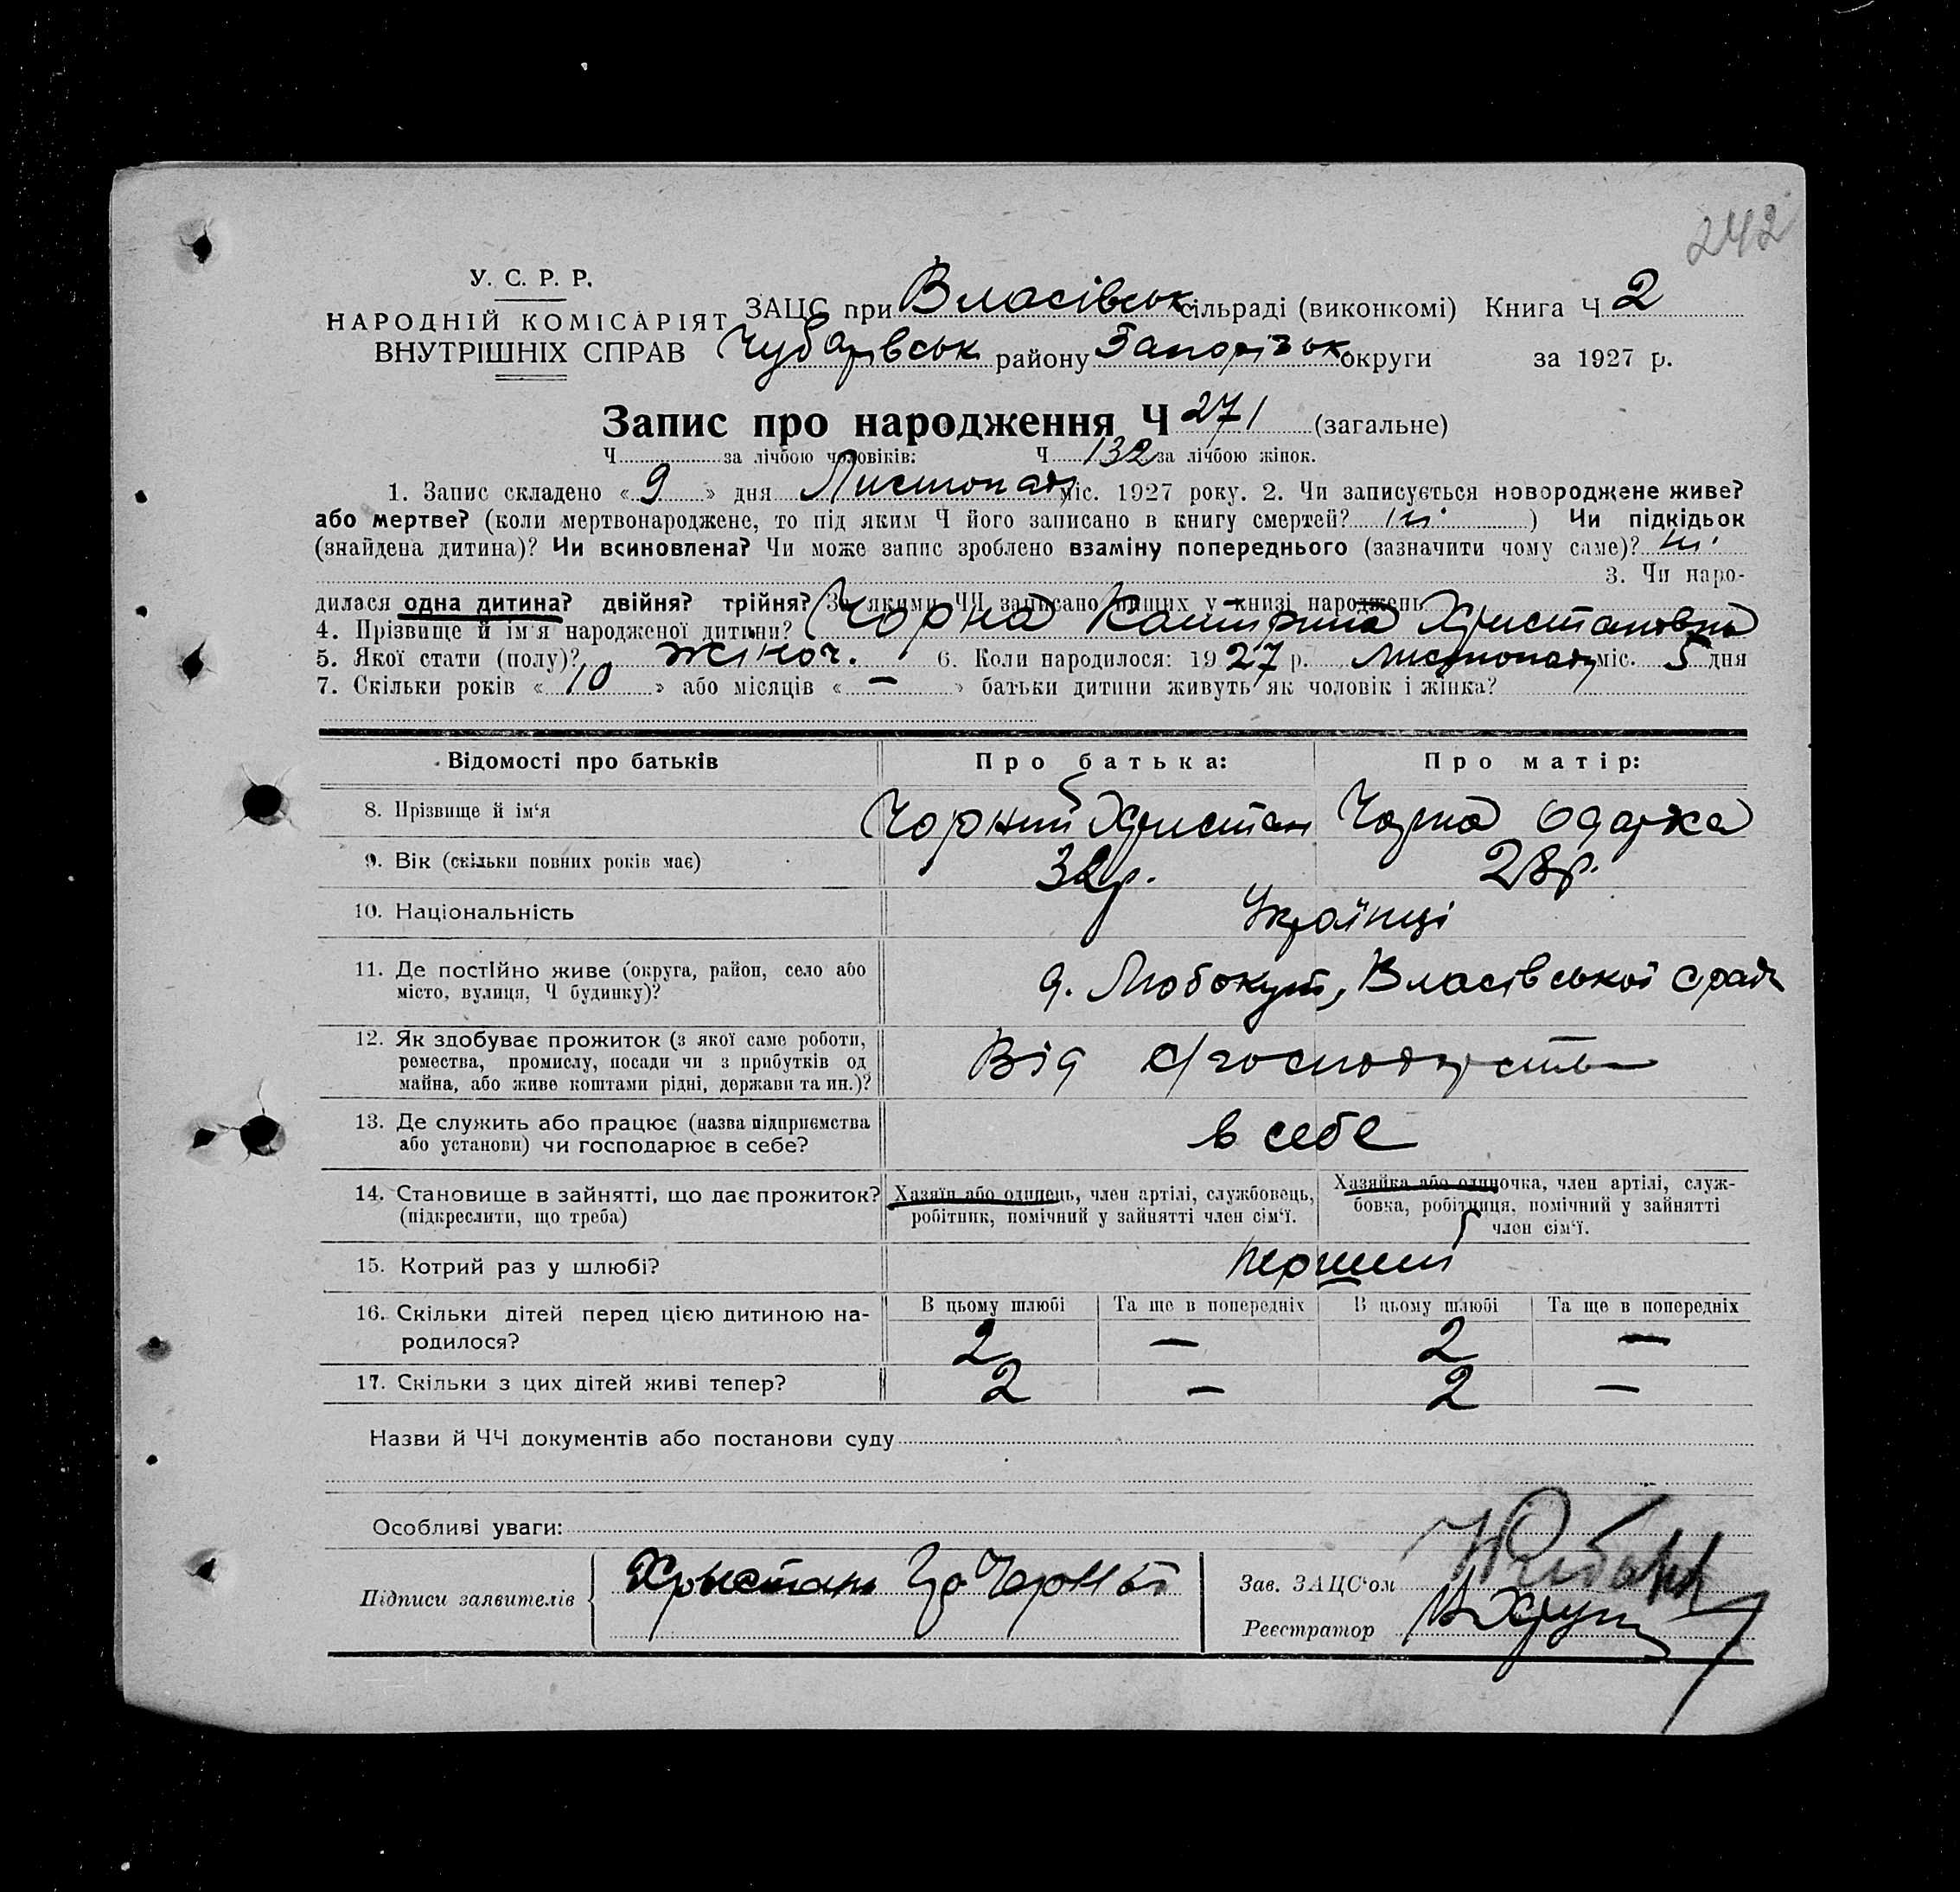 242
У. С. Р. Р.
НАРОДНІЙ КОМІСАРІЯТ
ВНУТРІШНІХ СПРАВ
ЗАЦС при Власівськ сільраді (виконкомі) Книга Ч 2
Чубарівськ району Запорізьк округи за 1927 р.
Запис про народження Ч 271 (загальне)
Ч за лічбою чоловіків: Ч 132 за лічбою жінок.
1. Запис складено « 9 » дня Листопад міс. 1927 року. 2. Чи записується новороджене живе?
або мертве? (коли мертвонароджене, то під яким Ч його записано в книгу смертей? ні ) Чи підкідьок
(знайдена дитина)? Чи всиновлена? Чи може запис зроблено взаміну попереднього (зазначити чому саме)? ні
3. Чи наро-
дилася одна дитина? двійня? трійня? За якими ЧЧ записано инших у книзі народжень
4. Прізвище й ім'я народженої дитини? Чорна Катирина Християновна
5. Якої стати (полу)? жіноч. 6. Коли народилося: 1927 р. Листопад міс. 5 дня
7. Скільки років « 10 » або місяців « — » батьки дитини живуть як чоловік і жінка?
Відомості про батьків Про батька: Про матір:
8. Прізвище й ім'я Чорний Християн Чорна Одарка
9. Вік (скільки повних років має) 32 р. 28 р.
10. Національність Українці
11. Де постійно живе (округа, район, село або
місто, вулиця, Ч будинку)? д. Любокут, Власівської с ради
12. Як здобуває прожиток (з якої саме роботи,
ремества, промислу, посади чи з прибутків од
майна, або живе коштами рідні, держави та ин.)? Від с/господарства
13. Де служить або працює (назва підприємства
або установи) чи господарює в себе? в себе
14. Становище в зайнятті, що дає прожиток?
(підкреслити, що треба)
Хазяїн або одинець, член артілі, службовець,
робітник, помічний у зайнятті член сім'ї.
Хазяйка або одиночка, член артілі, служ-
бовка, робітниця, помічний у зайнятті
член сім'ї.
15. Котрий раз у шлюбі? перший
16. Скільки дітей перед цією дитиною на-
родилося?
В цьому шлюбі Та ще в попередніх В цьому шлюбі Та ще в попередніх
2 — 2 —
17. Скільки з цих дітей живі тепер? 2 — 2 —
Назви й ЧЧ документів або постанови суду
Особливі уваги:
Підписи заявителів
Зав. ЗАЦС'ом
Реєстратор